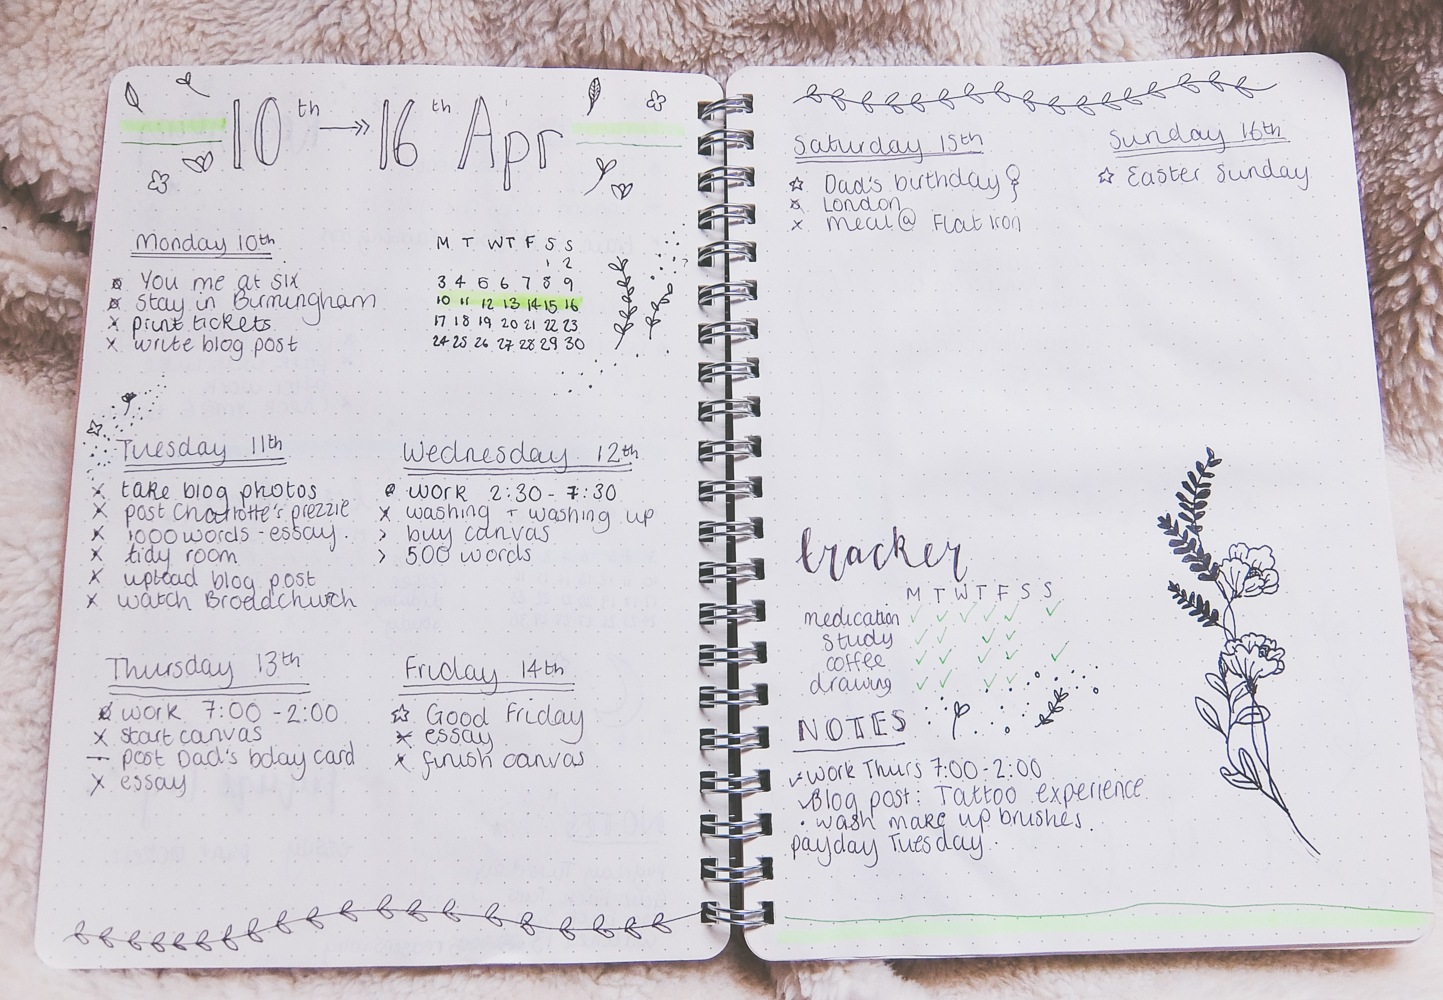 10th → 16th Apr
Monday 10th
You me at six
stay in Birmingham
x print tickets
x write blog post
M T W T F S S
1 2
3 4 5 6 7 8 9
10 11 12 13 14 15 16
17 18 19 20 21 22 23
24 25 26 27 28 29 30
Tuesday 11th
x take blog photos
x post Charlotte's prezzie
x 1000 words - essay.
x tidy room
x upload blog post
x watch Broadchurch
Wednesday 12th
work 2:30 - 7:30
x washing + washing up
> buy canvas
> 500 words
Thursday 13th
work 7:00 - 2:00
x start canvas
— post Dad's bday card
x essay
Friday 14th
☆ Good Friday
x essay
x finish canvas
Saturday 15th
☆ Dad's birthday
London
x meal @ Flat Iron
Sunday 16th
☆ Easter Sunday
tracker
M T W T F S S
medication ✓ ✓ ✓ ✓ ✓ ✓
study ✓ ✓ ✓ ✓
coffee ✓ ✓ ✓ ✓ ✓
drawing ✓ ✓ ✓ ✓
NOTES
✓ work Thurs 7:00 - 2:00
✓ Blog post: Tattoo experience
• wash make up brushes.
payday Tuesday.